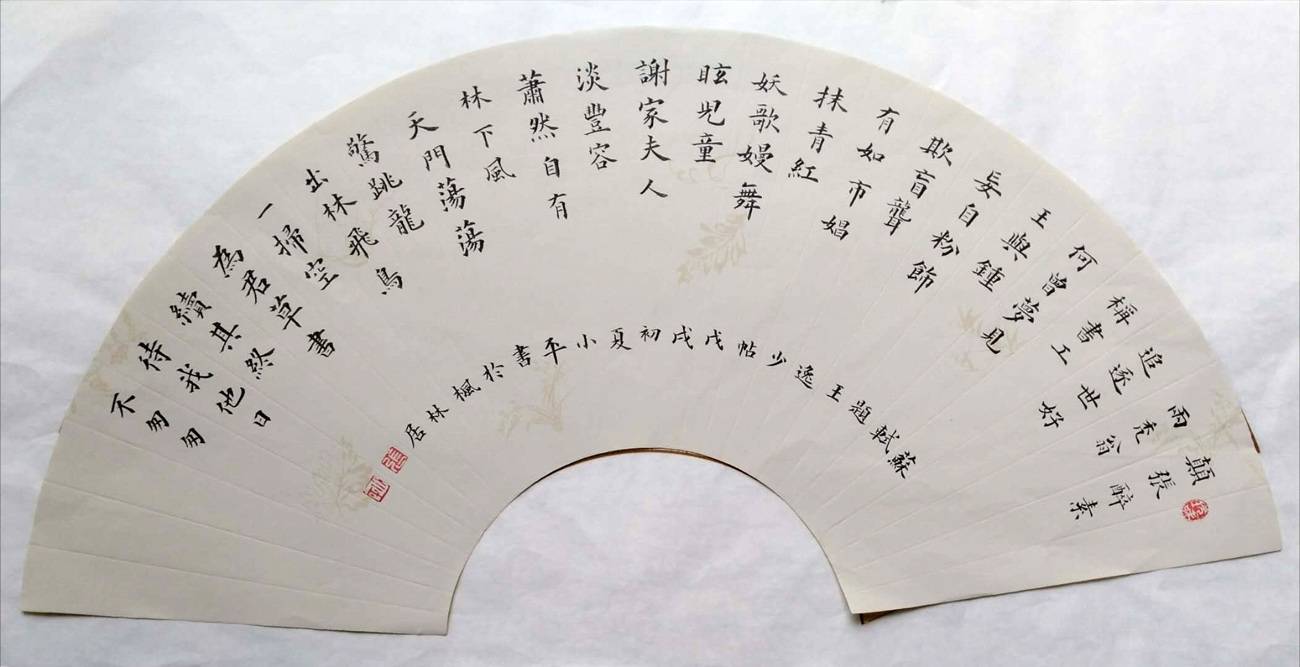 顛張醉素
兩禿翁
追逐世好
稱書工
何曾夢見
王與鍾
妄自粉飾
欺盲聾
有如市娼
抹青紅
妖歌嫚舞
眩兒童
謝家夫人
淡豐容
蕭然自有
林下風
天門蕩蕩
驚跳龍
出林飛鳥
一掃空
為君草書
續其終
待我他日
不匆匆
蘇軾題王逸少帖戊戌初夏小平書於楓林居